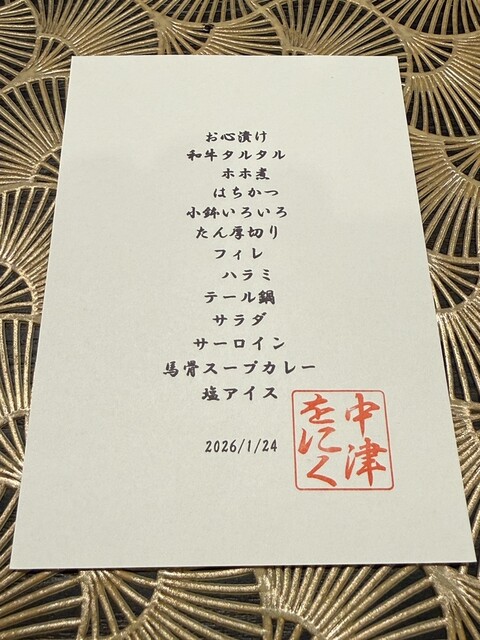 お心漬け
和牛タルタル
ホホ煮
はちかつ
小鉢いろいろ
たん厚切り
フィレ
ハラミ
テール鍋
サラダ
サーロイン
馬骨スープカレー
塩アイス
2026/1/24
中津
をにく